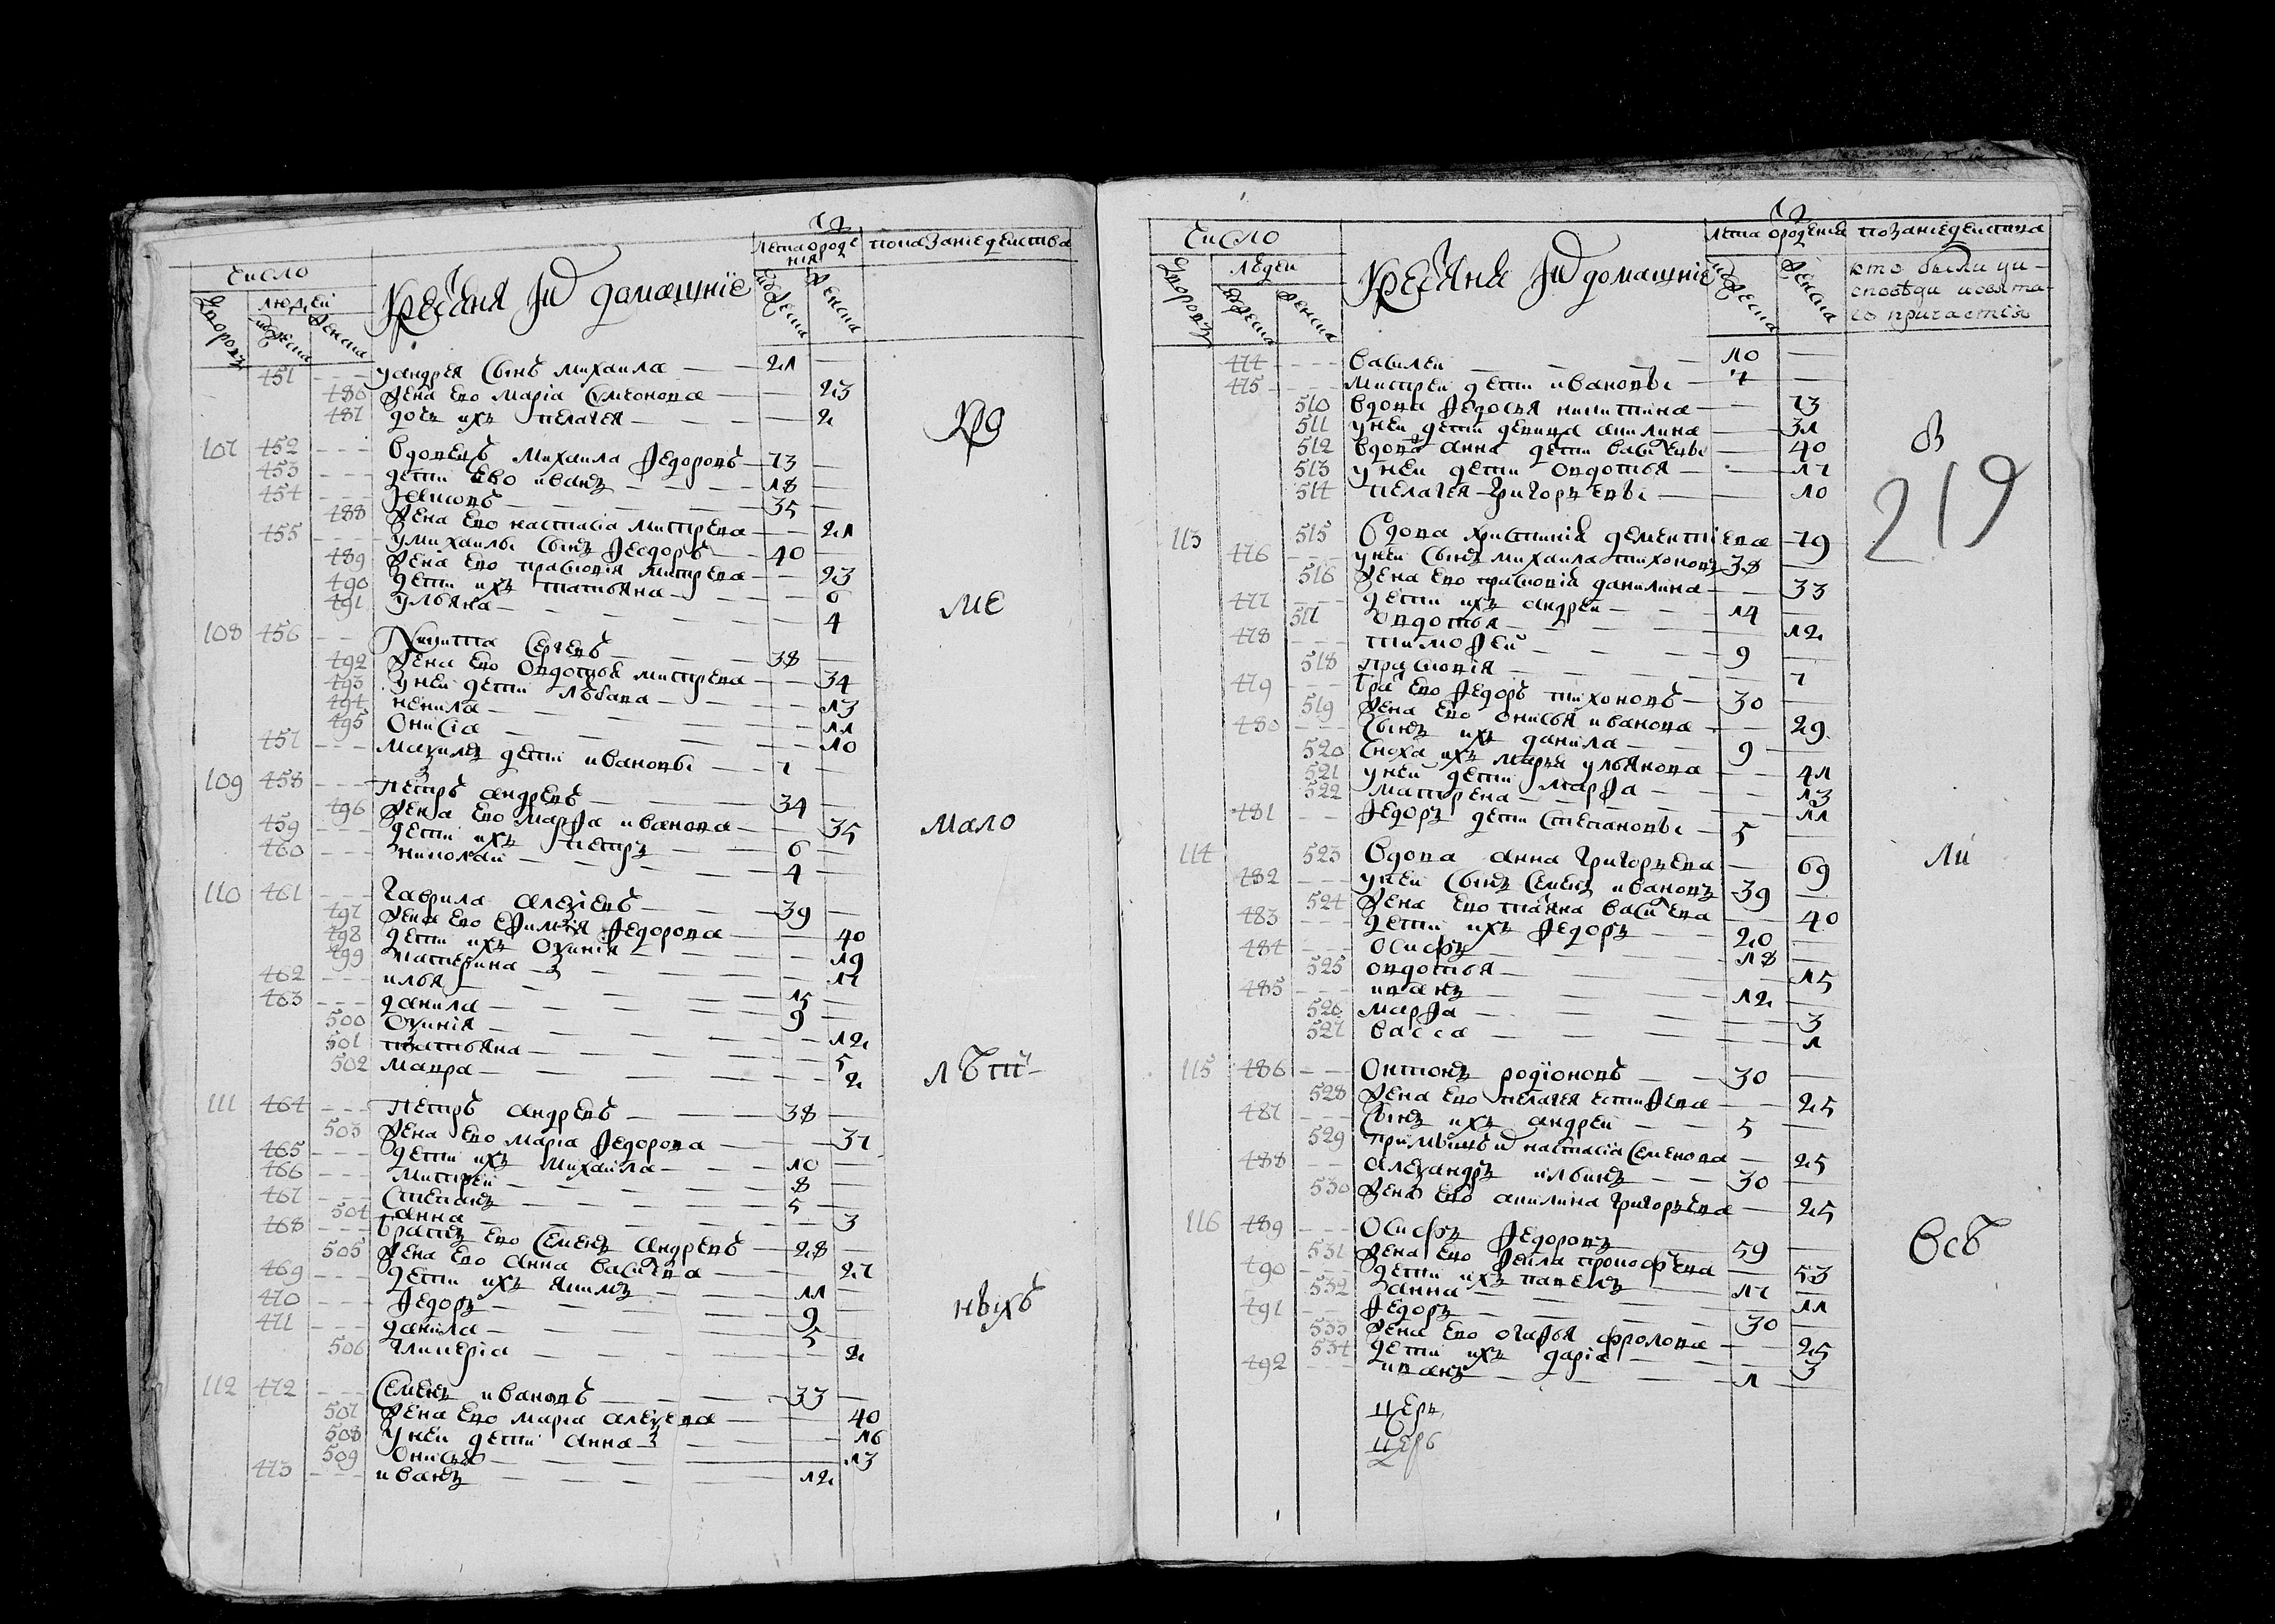 число
крестьяня и домашние
лета орожде
ния
показание действа
дворовъ
людей
мужеска
женска
мужеска
женска
451 у андрея сынъ михаила 21
486 жена ево мариа симеонова 23
487 дочь ихъ пелагея 2
107 452 вдовецъ михаила федоровъ 73
453 дети ево иванъ 18
454 35
488 жена ево настасиа митрева 21
455 у михаилы сынъ феодоръ 40
489 жена ево прасковия митрева 23
490 дети ихъ татьяна 6
491 ульяна 4
108 456 Никита Сергевъ 38
492 жена ево овдотья митрева 34
493 у ней дети 13
494 ненила 11
495 Онисиа 10
457 дети ивановы 7
109 458 петръ андревъ 34
496 жена ево марфа иванова 35
459 дети ихъ петръ 6
460 николай 4
110 461 гаврила алексиевъ 39
497 жена ево ефимия федорова 40
498 дети ихъ оксиния 19
499 катерина 17
462 илья 15
463 данила 9
500 оксиния 12
501 татьяна 5
502 мавра 2
111 464 петръ андревъ 38
503 жена ево мариа федорова 37
465 дети ихъ михаила 10
466 митрей 8
467 степанъ 5
504 анна 3
468 братъ ево семенъ андревъ 28
505 жена ево анна васильева 27
469 дети ихъ якимъ 11
470 федоръ 9
471 данила 5
506 гликериа 2
112 472 Семенъ ивановъ 33
507 жена ево мариа алексева 40
508 у ней дети анна 16
509 онисья 13
473 иванъ 12
кро
ме
мало
лѣт
ныхъ
число
крестьяня и домашние
лета орождения
показание действа
дворовъ
людей
мужеска
женска
мужеска
женска
кто были у и-
споведи и свята-
го причастия
474 василей 10
475 митрей дети ивановы 7
510 вдова федосья никитина 73
511 у ней дети девица акилина 31
512 вдова анна дети васильевы 40
513 у ней дети овдотья 17
514 пелагея григорьевы 10
113 515 вдова христиния дементиева 79
476 у ней сынъ михаила тихоновъ 38
516 жена ево прасковия данилина 33
477 дети ихъ андрей 14
517 овдотья 12
478 тимофей 9
518 прасковия 7
479 братъ ево федоръ тихоновъ 30
519 жена ево онисья иванова 29
480 сынъ ихъ данила 9
520 сноха ихъ марья ульянова 41
521 у ней дети марфа 13
522 матрена 11
481 федоръ дети степановы 5
114 523 вдова анна григорьева 69
482 у ней сынъ семенъ ивановъ 39
524 жена ево татьяна васильева 40
483 дети ихъ федоръ 20
484 осифъ 18
525 овдотья 15
485 иванъ 12
526 марфа 3
527 васса 1
115 486 онтонъ родионовъ 30
528 жена ево пелагея естифева 25
487 сынъ ихъ андрей 5
529 настасиа семенова 25
488 александръ ильинъ 30
530 жена ево акилина григорьева 25
116 489 осифъ федоровъ 59
531 жена ево фекла прокофьева 53
490 дети ихъ павелъ 17
532 анна 11
491 федоръ 30
533 жена ево огафья фролова 25
534 дети ихъ дариа 3
492 иванъ 1
церк
церк
в
219
ли
всѣ